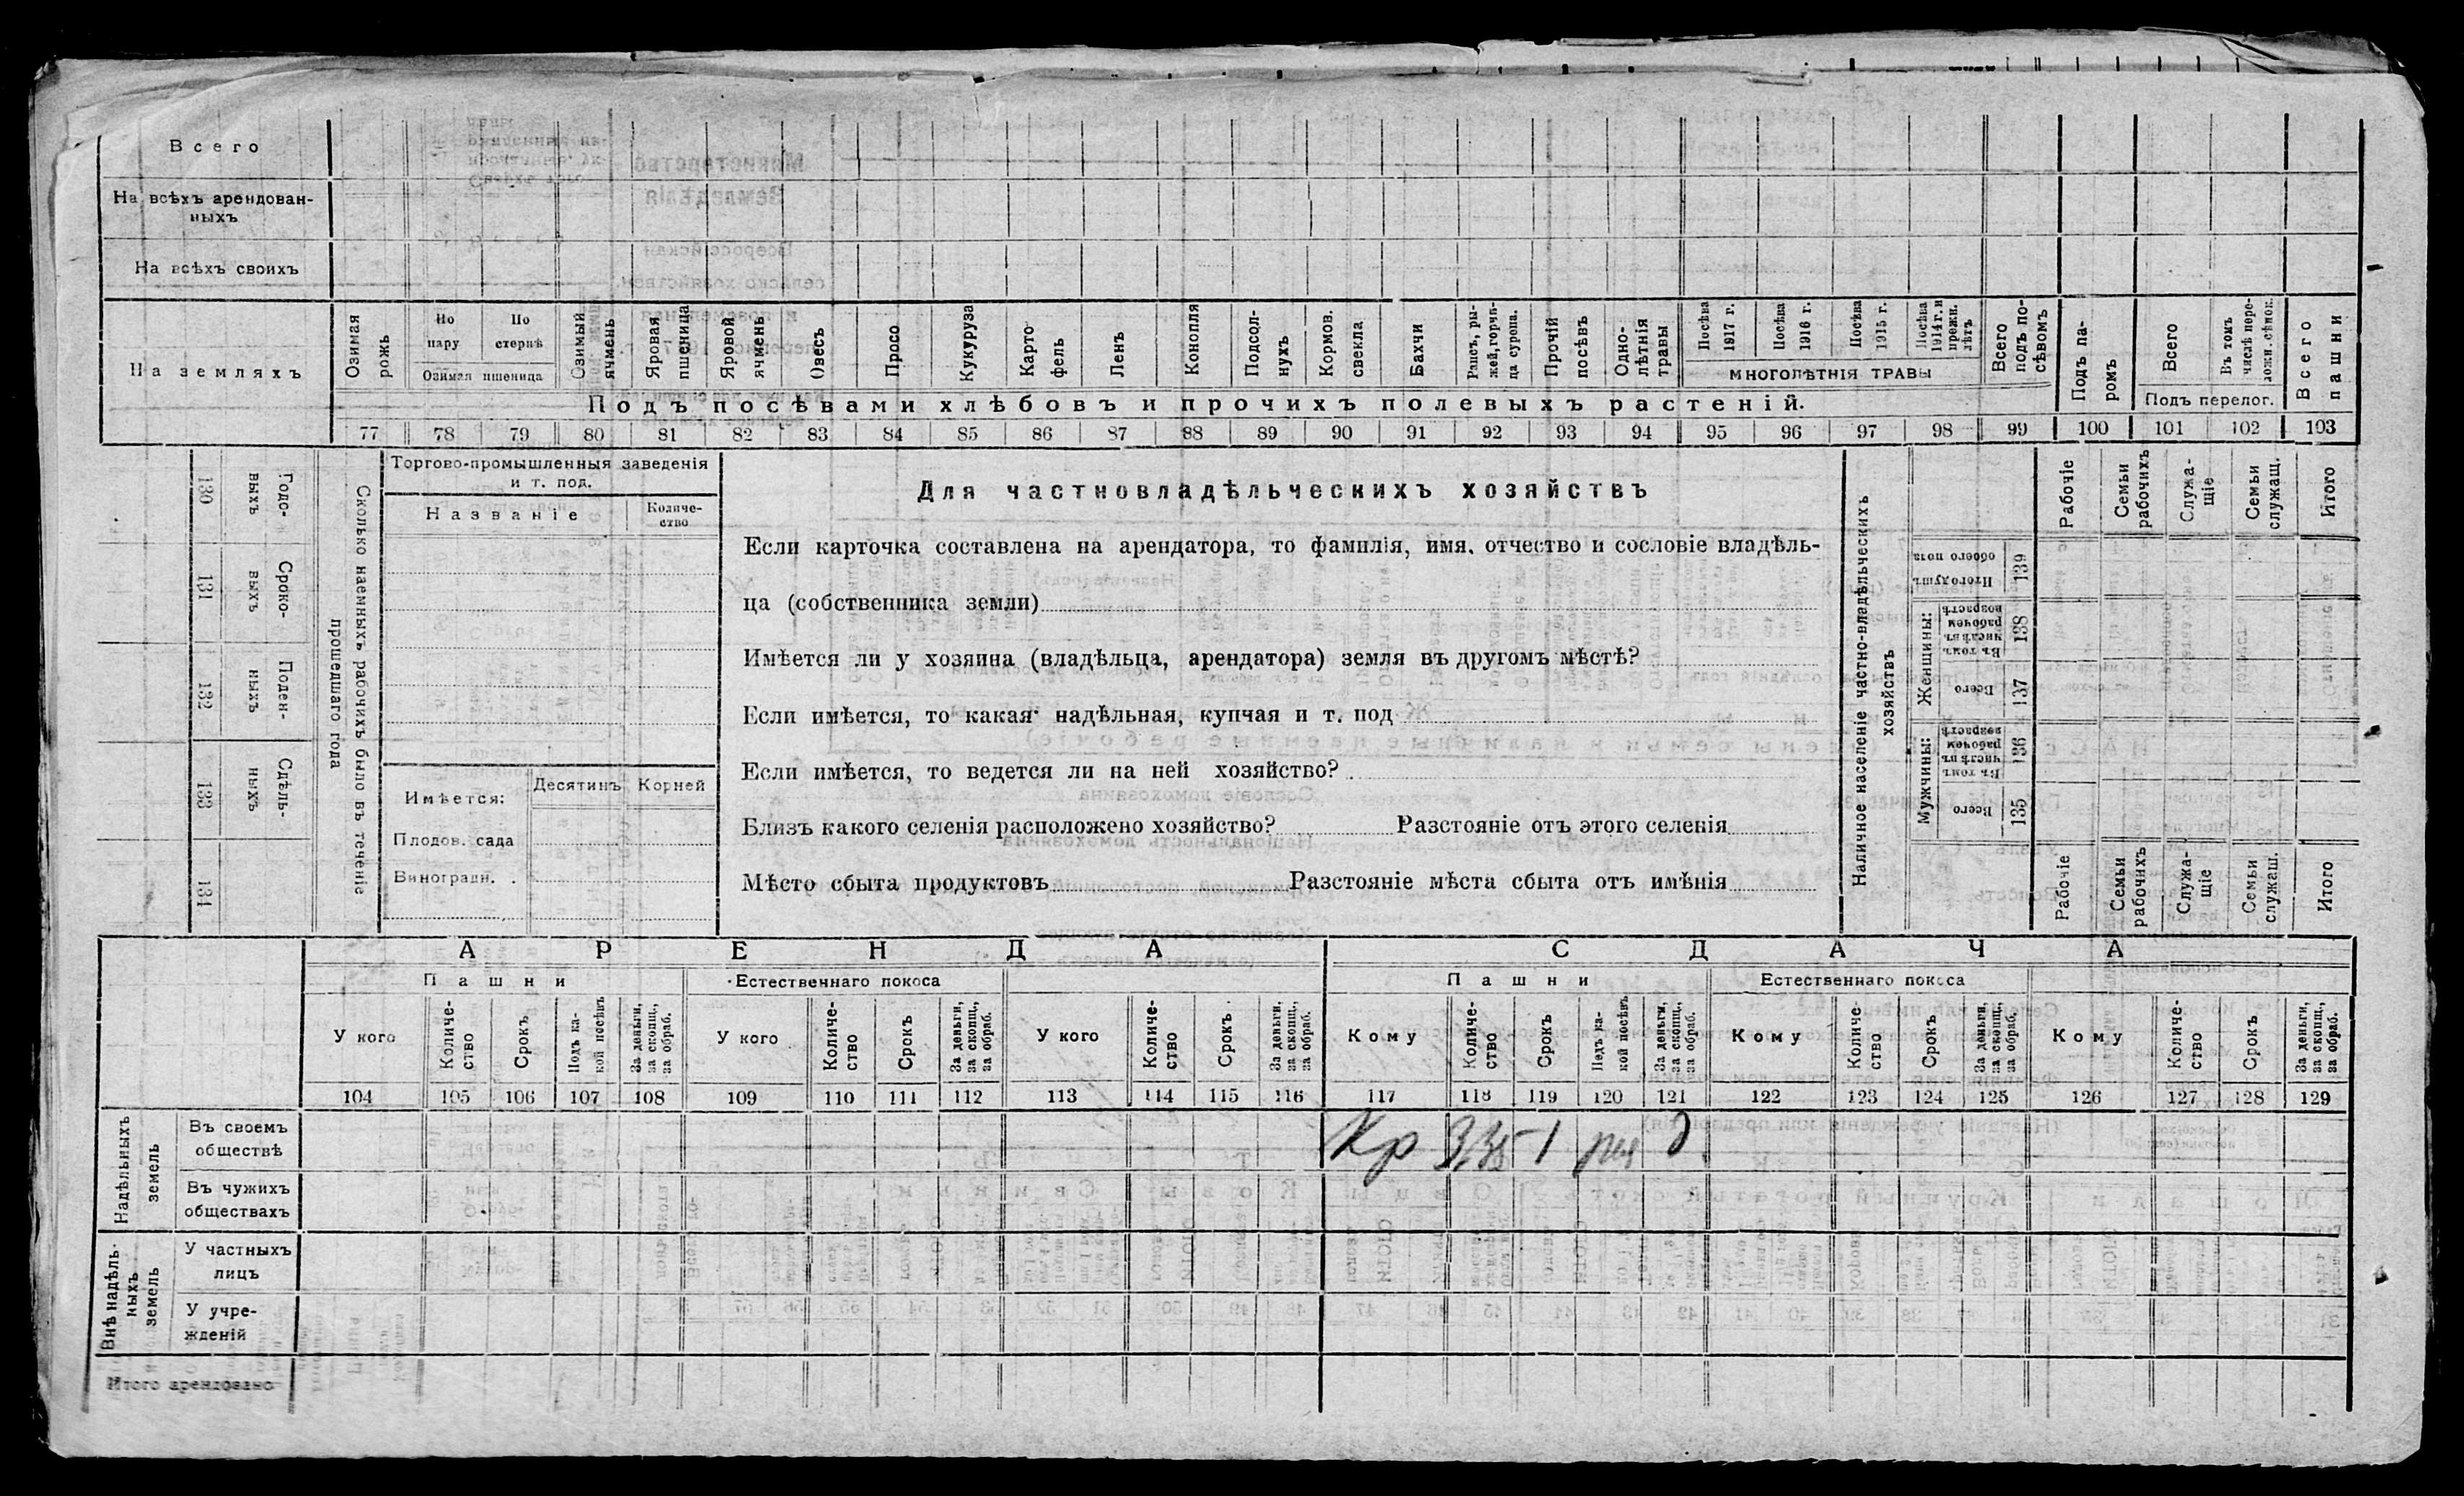 Всего
На всѣхъ арендован-
ныхъ
На всѣхъ своихъ
На земляхъ
Озимая рожь
По пару
По стернѣ
Озимая пшеница
Озимый ячмень
Яровая пшеница
Яровой ячмень
Овесъ
Просо
Кукуруза
Карто-
фель
Ленъ
Конопля
Подсол-
нухъ
Кормов. свекла
Бахчи
Рапсъ, ры-
жей, горчи-
ца сурепа.
Прочій посѣвъ
Одно-
лѣтнія травы
Посѣва 1917 г.
Посѣва 1916 г.
Посѣва 1915 г.
Посѣва 1914 г. и прежн. лѣтъ
МНОГОЛѢТНІЯ ТРАВЫ
Всего подъ по-
сѣвомъ
Подъ па-
ромъ
Всего
Въ томъ числѣ пере-
ложн. сѣнок.
Подъ перелог.
Всего пашни
Подъ посѣвами хлѣбовъ и прочихъ полевыхъ растеній.
77 78 79 80 81 82 83 84 85 86 87 88 89 90 91 92 93 94 95 96 97 98 99 100 101 102 103
Сколько наемныхъ рабочихъ было въ теченіе
прошедшаго года
Годо-
выхъ
130
Сроко-
выхъ
131
Поден-
ныхъ
132
Сдѣль-
ныхъ
133
134
Торгово-промышленныя заведенія
и т. под.
Названіе
Количе-
ство
Имѣется:
Десятинъ
Корней
Плодов. сада
Виноградн. .
Для частновладѣльческихъ хозяйствъ
Если карточка составлена на арендатора, то фамилія, имя, отчество и сословіе владѣль-
ца (собственника земли)
Имѣется ли у хозяина (владѣльца, арендатора) земля въ другомъ мѣстѣ?
Если имѣется, то какая: надѣльная, купчая и т. под
Если имѣется, то ведется ли на ней хозяйство?
Близъ какого селенія расположено хозяйство? Разстояніе отъ этого селенія
Мѣсто сбыта продуктовъ Разстояніе мѣста сбыта отъ имѣнія
Наличное населеніе частно-владѣльческихъ
хозяйствъ
Рабочіе
Семьи рабочихъ
Служа-
щіе
Семьи служащ.
Итого
Итого душъ обоего пола
139
Женщины:
Въ томъ числѣ въ рабочемъ возрастѣ
138
Всего
137
Мужчины:
Въ томъ числѣ въ рабочемъ возрастѣ
136
Всего
135
Рабочіе
Семьи рабочихъ
Служа-
щіе
Семьи служащ.
Итого
АРЕНДА
СДАЧА
Пашни
Естественнаго покоса
Пашни
Естественнаго покоса
У кого
Количе-
ство
Срокъ
Подъ ка-
кой посѣвъ
За деньги, за скопщ., за обраб.
У кого
Количе-
ство
Срокъ
За деньги, за скопщ., за обраб.
У кого
Количе-
ство
Срокъ
За деньги, за скопщ., за обраб.
Кому
Количе-
ство
Срокъ
Подъ ка-
кой посѣвъ
За деньги, за скопщ., за обраб.
Кому
Количе-
ство
Срокъ
За деньги, за скопщ., за обраб.
Кому
Количе-
ство
Срокъ
За деньги, за скопщ., за обраб.
104 105 106 107 108 109 110 111 112 113 114 115 116 117 118 119 120 121 122 123 124 125 126 127 128 129
Надѣльныхъ
земель
Въ своемъ
обществѣ
Кр 1
Въ чужихъ
обществахъ
Внѣ надѣль-
ныхъ
земель
У частныхъ
лицъ
У учре-
жденій
Итого арендовано